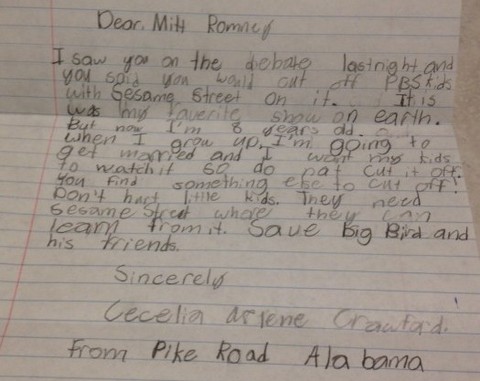 Dear, Mitt Romney
I saw you on the debate lastnight and
you said you would cut off PBS Kids
with Sesame Street on it. It is
was my faverite show on earth.
But now I'm 8 years old.
when I grow up, I'm going to
get married and I want my kids
to watch it so do not cut it off.
You find something else to cut off!
Don't hurt little kids. They need
Sesame Street where they can
learn from it. Save Big Bird and
his friends.
Sincerely
Cecelia Arlene Crawford.
From Pike Road Alabama